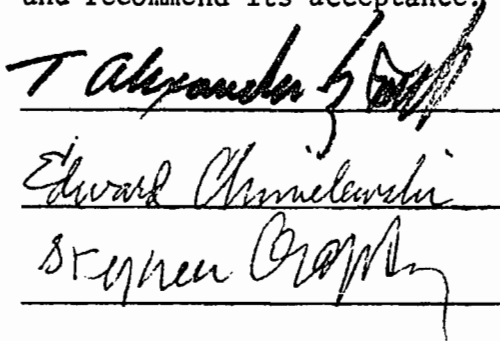 and recommend its acceptance.
T Alexander
Edward Chmielewski
Stephen